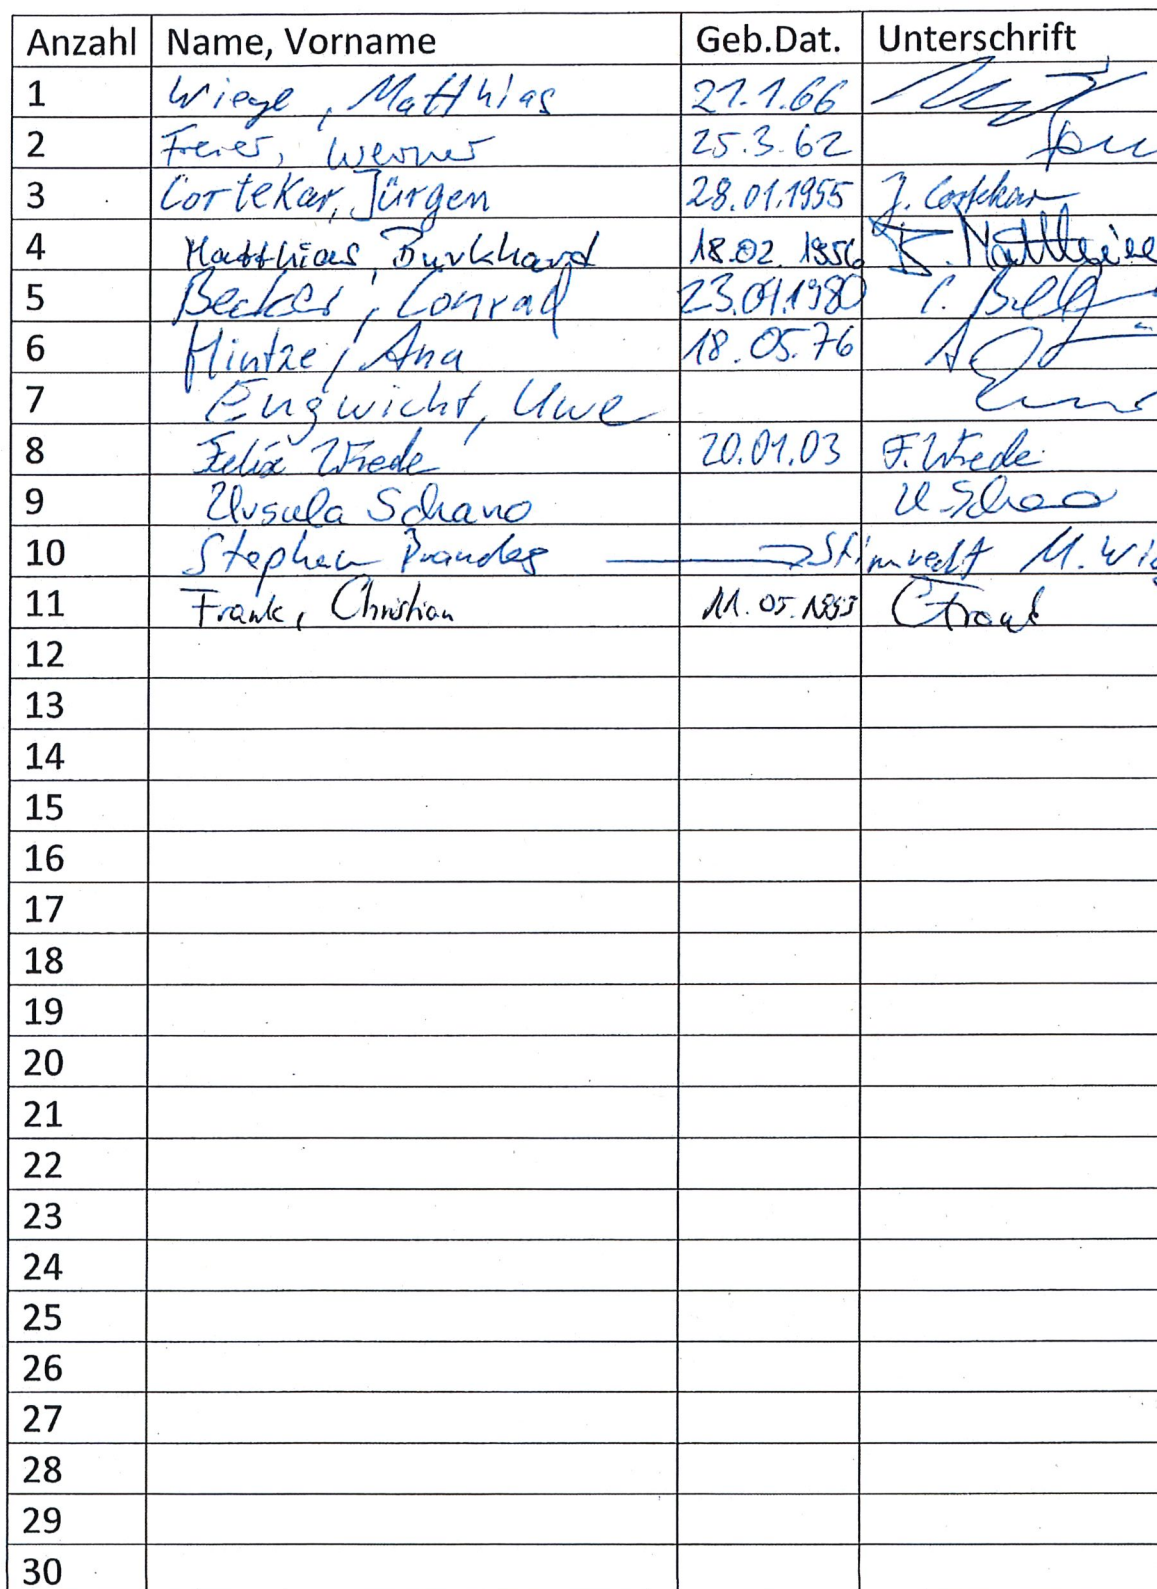 Anzahl Name, Vorname Geb.Dat. Unterschrift
1 Wiege, Matthias 21.1.66
2 Freier, Werner 25.3.62
3 Cortekar, Jürgen 28.01.1955 J. Cortekar
4 Matthias, Burkhard 18.02.1956 B. Matthias
5 Becker, Conrad 23.01.1980
6 Hintze, Ana 18.05.76
7 Engwicht, Uwe
8 Felix Wrede 20.01.03 F. Wrede
9 Ursula Schano
10 Stephan Brandes M. Wieg
11 Frank, Christian 11.05.1993 C Frank
12
13
14
15
16
17
18
19
20
21
22
23
24
25
26
27
28
29
30